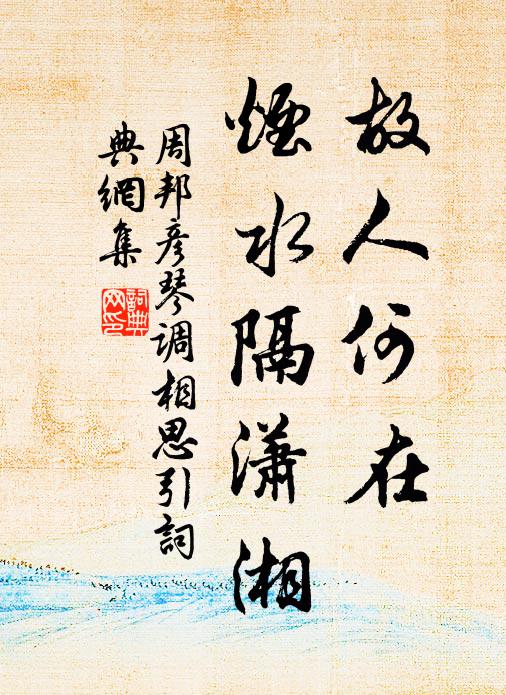 故人何在
煙水隔潇湘
周邦彦琴调相思引詞
典網集
詞典网印